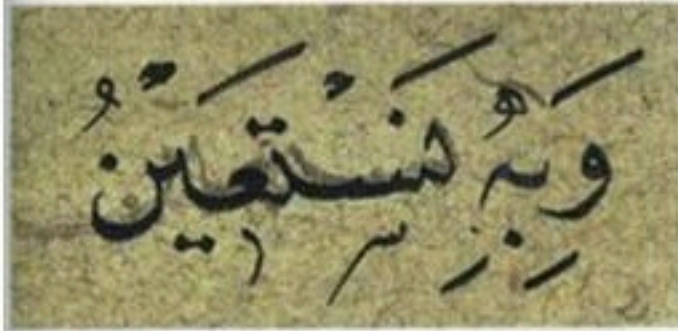 وَبِهِ نَسْتَعَيْنُ